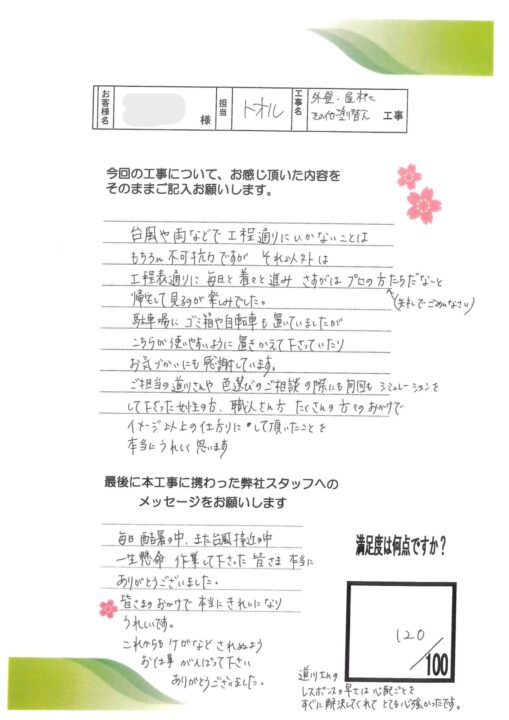 お客様名 様 担当 トオル 工事名 外壁・屋根に その他塗り替え 工事
今回の工事について、お感じ頂いた内容を
そのままご記入お願いします。
台風や雨などで工程通りにいかないことは
もちろん不可抗力ですが それ以外は
工程表通りに 毎日と着々と進み さすがは プロの方たちだなーと
(失礼でごめんなさい)
帰宅して見るのが楽しみでした。
駐車場に ゴミ箱や自転車も置いていましたが
こちらが使いやすいように置きかえて下さっていたり
お気づかいにも感謝しています。
ご担当の道川さんや 色選びのご相談の際にも何回も シミュレーションを
して下さった女性の方、職人さん方 たくさんの方々のおかげで
イメージ以上の仕上りに して頂いたことを
本当にうれしく思います
最後に本工事に携わった弊社スタッフへの
メッセージをお願いします
毎日 酷暑の中、また台風接近の中
一生懸命 作業して下さった 皆さま 本当に
ありがとうございました。
皆さまのおかげで 本当にきれいになり
うれしいです。
これからも ケガなど されぬよう
お仕事 がんばって下さい
ありがとうございました。
満足度は何点ですか？
120
/100
道川さんの
レスポンスの早さは 心配ごとを
すぐに解決してくれて とても心強かったです。